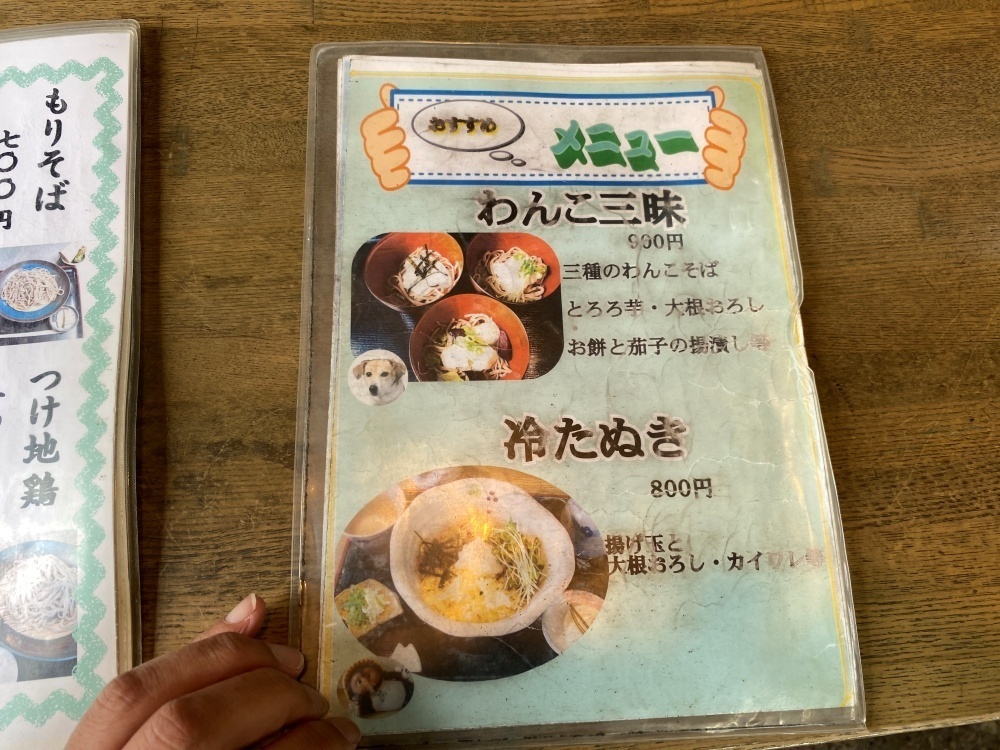 もりそば
七〇〇円
つけ地鶏
おすすめ
メニュー
わんこ三昧
900円
三種のわんこそば
とろろ芋・大根おろし
お餅と茄子の揚漬し等
冷たぬき
800円
揚げ玉と
大根おろし・カイワレ等